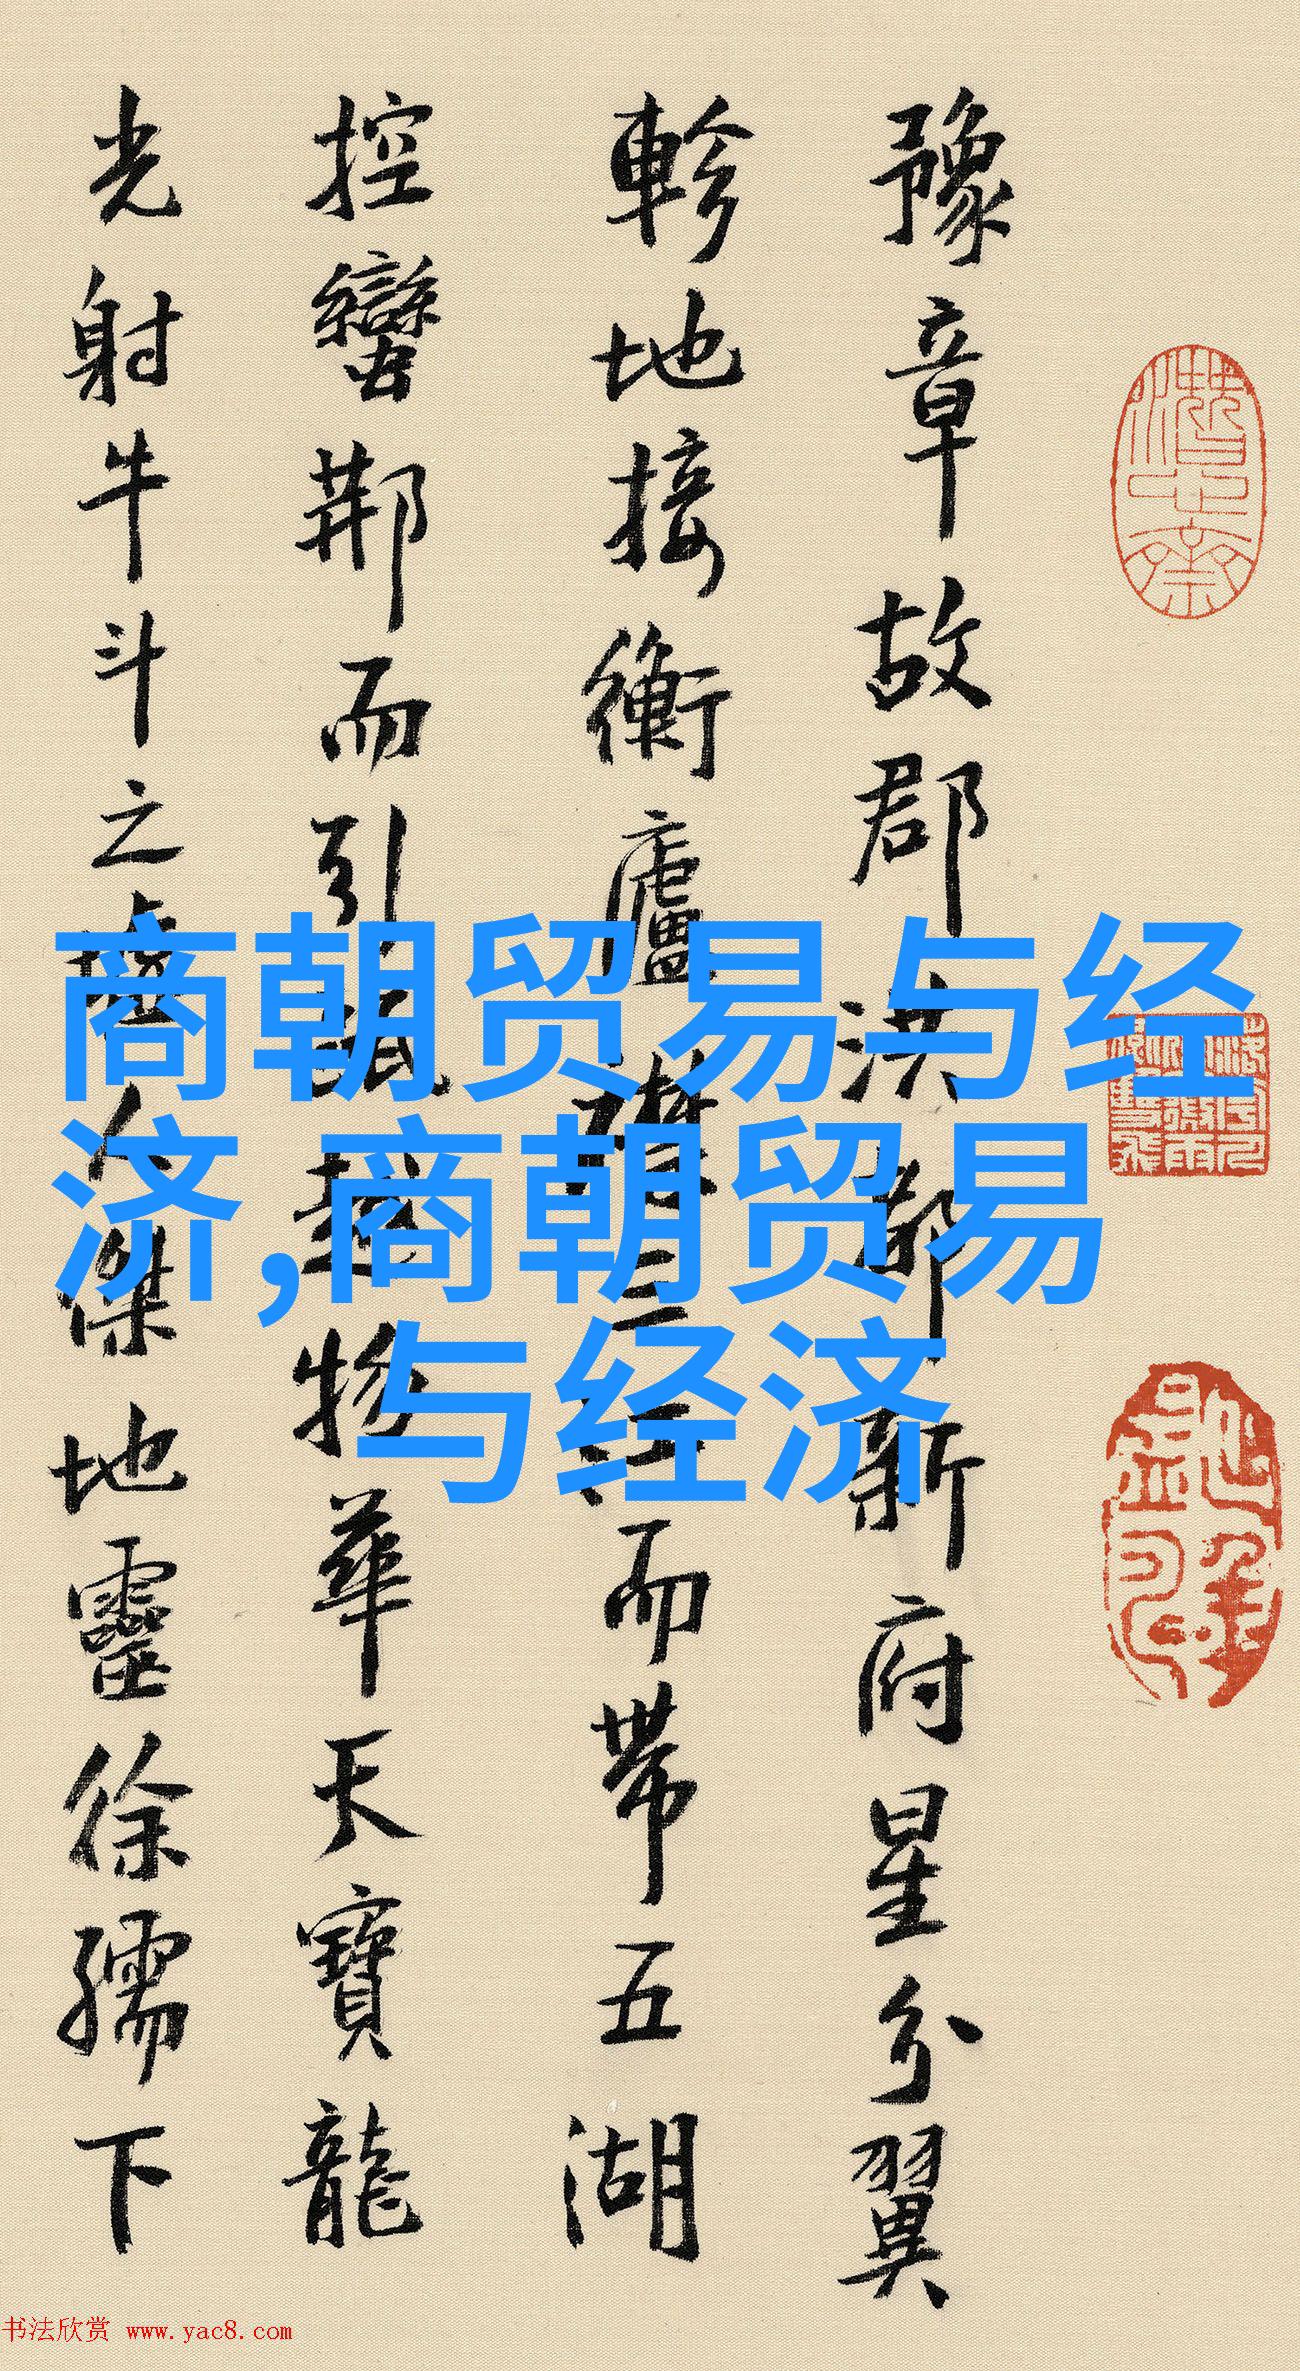 豫章故郡洪都新府星分翼
軫地接衡廬襟三江而帶五湖
控蠻荊而引甌越物華天寶龍
光射牛斗之墟人傑地靈徐孺下
商朝贸易与经
济,商朝贸易
与经济
书法欣赏 www.yac8.com